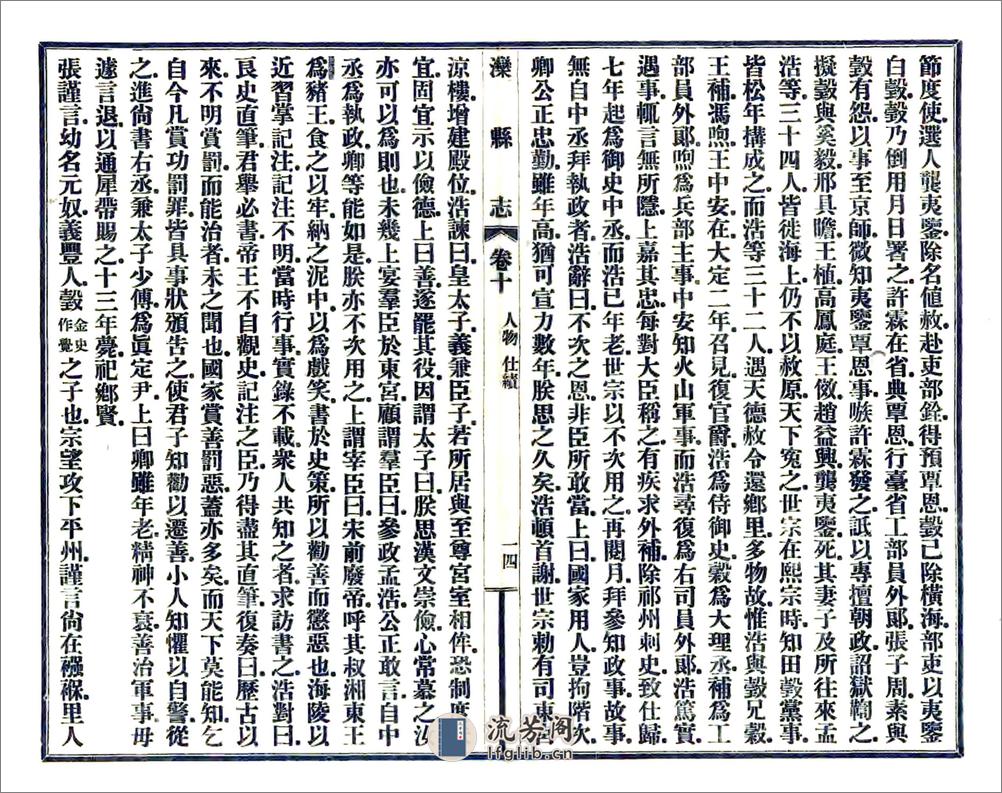 節度使選人龔夷鑒除名值赦赴吏部銓得預覃恩瑴已除橫海部吏以夷鑒
白瑴瑴乃倒用月日署之許霖在省典覃恩行臺省工部員外郞張子周素與
瑴有怨以事至京師微知夷鑒覃恩事嗾許霖發之詆以專擅朝政詔獄鞫之
擬瑴與奚毅邢具瞻王植高鳳庭王傚趙益興龔夷鑒死其妻子及所往來孟
浩等三十四人皆徙海上仍不以赦原天下寃之世宗在熙宗時知田瑴黨事
皆松年搆成之而浩等三十二人遇天德赦令還鄉里多物故惟浩與瑴兄穀
王補馮煦王中安在大定二年召見復官爵浩爲侍御史穀爲大理丞補爲工
部員外郞煦爲兵部主事中安知火山軍事而浩尋復爲右司員外郞浩篤實
遇事輒言無所隱上嘉其忠每對大臣稱之有疾求外補除祁州刺史致仕歸
七年起爲御史中丞而浩已年老世宗以不次用之再閱月拜參知政事故事
無自中丞拜執政者浩辭曰不次之恩非臣所敢當上曰國家用人豈拘階次
卿公正忠勤雖年高猶可宣力數年朕思之久矣浩頓首謝世宗勅有司東宮
灤縣志 卷十 人物 仕績 一四
涼樓增建殿位浩諫曰皇太子義兼臣子若所居與至尊宮室相侔恐制度
宜固宜示以儉德上曰善遂罷其役因謂太子曰朕思漢文崇儉心常慕之汝
亦可以爲則也未幾上宴羣臣於東宮顧謂羣臣曰參政孟浩公正敢言自中
丞爲執政卿等能如是朕亦不次用之上謂宰臣曰宋前廢帝呼其叔湘東王
爲豬王食之以牢納之泥中以爲戲笑書於史策所以勸善而懲惡也海陵以
近習掌記注記注不明當時行事實錄不載衆人共知之者求訪書之浩對曰
良史直筆君舉必書帝王不自觀史記注之臣乃得盡其直筆復奏曰歷古以
來不明賞罰而能治者未之聞也國家賞善罰惡蓋亦多矣而天下莫能知乞
自今凡賞功罰罪皆具事狀頒告之使君子知勸以遷善小人知懼以自警從
之進尙書右丞兼太子少傅爲眞定尹上曰卿雖年老精神不衰善治軍事毋
遽言退以通犀帶賜之十三年薨祀鄉賢
張謹言幼名元奴義豐人瑴金史作覺之子也宗望攻下平州謹言尙在襁褓里人
流芳阁
lfglib.cn